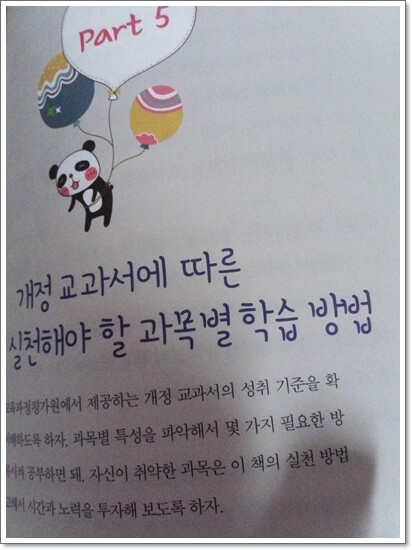 Part 5
개정 교과서에 따른
실천해야 할 과목별 학습 방법
교육과정평가원에서 제공하는 개정 교과서의 성취 기준을 확
하도록 하자. 과목별 특성을 파악해서 몇 가지 필요한 방
공부하면 돼. 자신이 취약한 과목은 이 책의 실천 방법
시간과 노력을 투자해 보도록 하자.